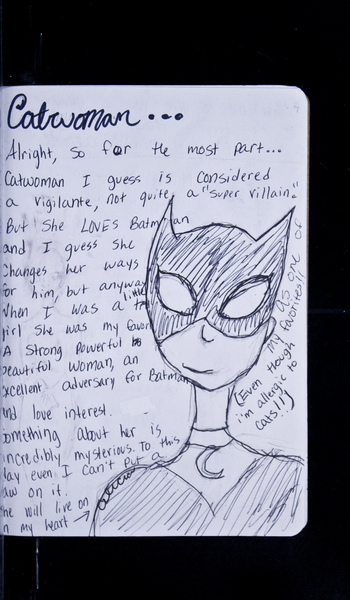 Catwoman...
Alright, so for the most part...
Catwoman I guess is considered
a vigilante, not quite a "super villain."
But she LOVES Batman
and I guess she
changes her ways
for him, but anyway
when I was a little
girl she was my favor
A strong powerful
beautiful woman, an
excellent adversary for Batman
and love interest.
something about her is
incredibly mysterious. To this
day even I can't put a
aw on it.
she will live on
in my heart →
is one of
my favorites!!
(Even though
i'm allergic to
cats!!)